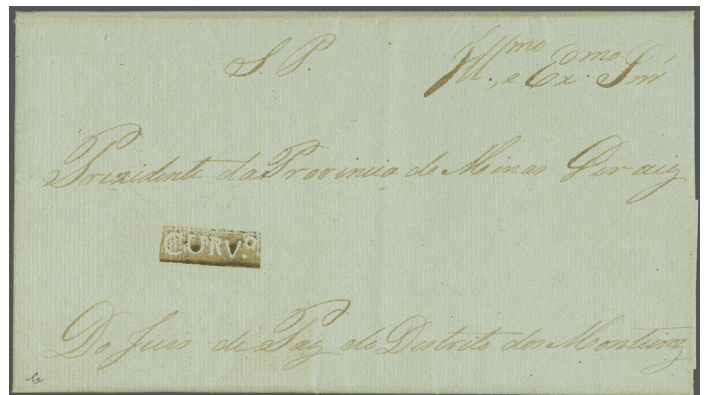 S. P. Ill.mo e Ex.mo Snr
Prezidente da Provincia de Minas Geraiz
CURV.o
Do Juis de Paz do Distrito dos Monteiroz